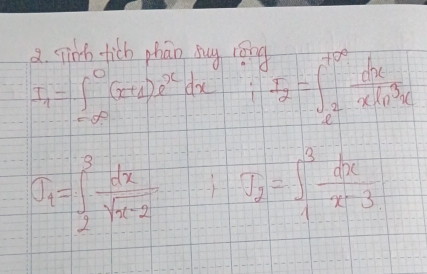 2. Tính tích phân suy rộng
I₁ = ∫_{-∞}^{0} (x+1) e^x dx ; I₂ = ∫_{e²}^{+∞} dx / (x ln³x)
J₁ = ∫_{2}^{3} dx / √(x-2) ; J₂ = ∫_{1}^{3} dx / (x-3)